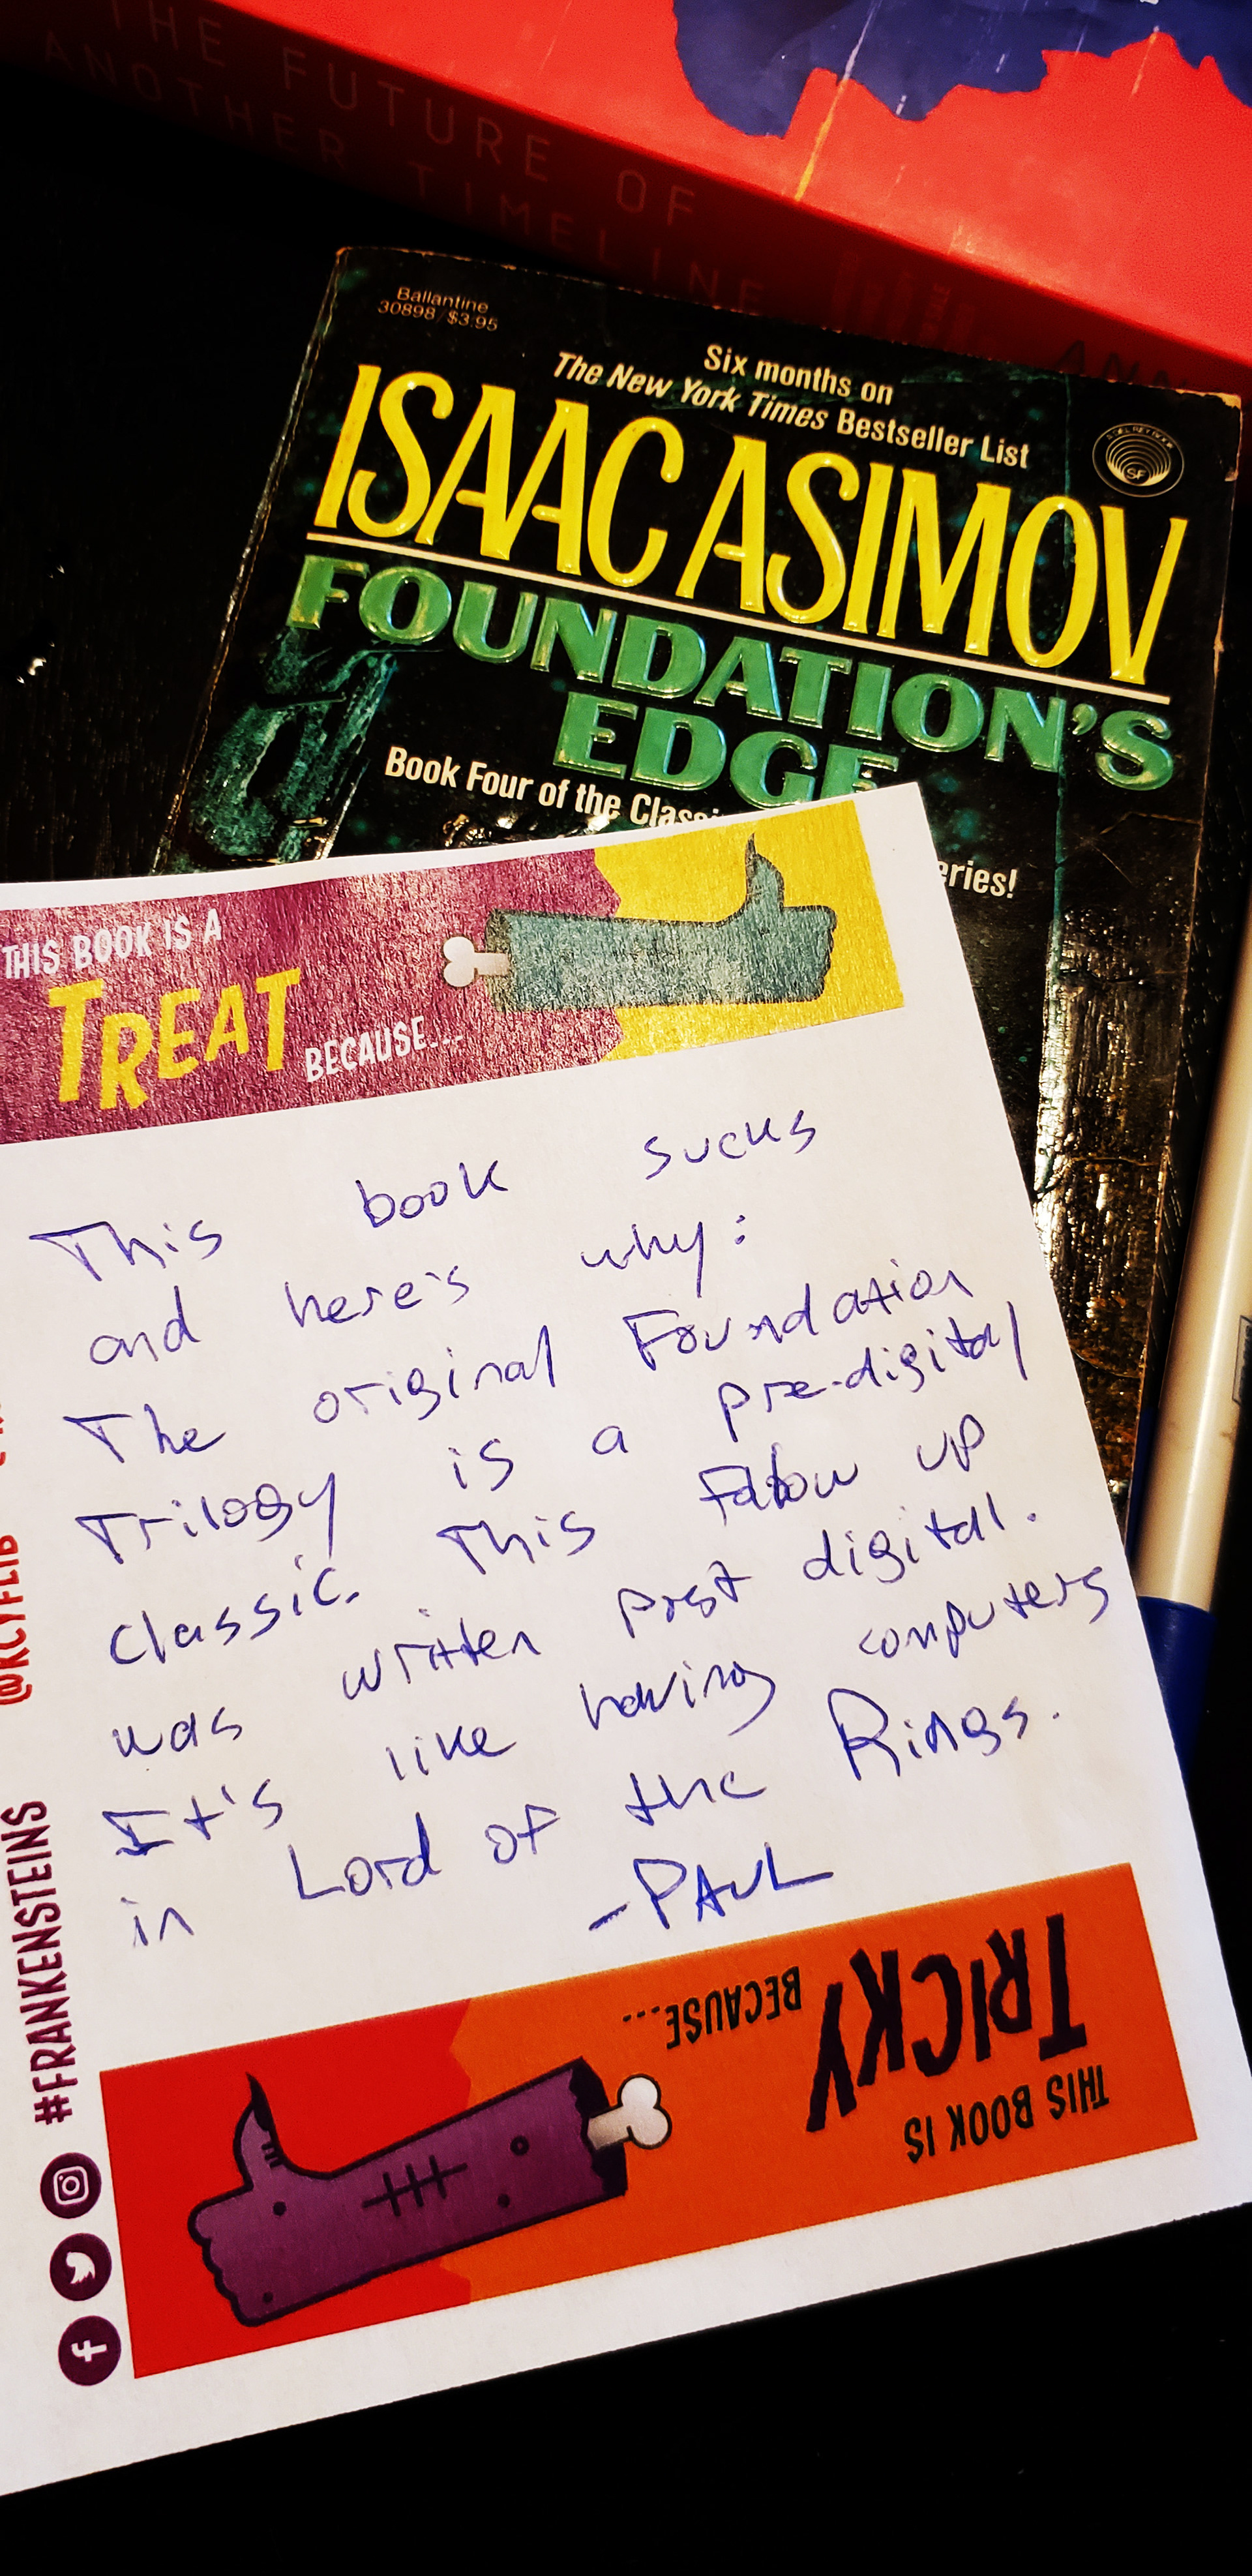 THE FUTURE OF
ANOTHER TIMELINE
Ballantine
30898/$3.95
Six months on
The New York Times Bestseller List
SF
ISAAC ASIMOV
FOUNDATION'S
EDGE
Book Four of the Class
eries!
THIS BOOK IS A
TREAT
BECAUSE...
This book sucks
and here's why:
The original Foundation
Trilogy is a pre-digital
classic. This follow up
was written post digital.
It's like having computers
in Lord of the Rings.
-PAUL
THIS BOOK IS
TRICKY
BECAUSE...
@KCYFLIB
#FRANKENSTEINS